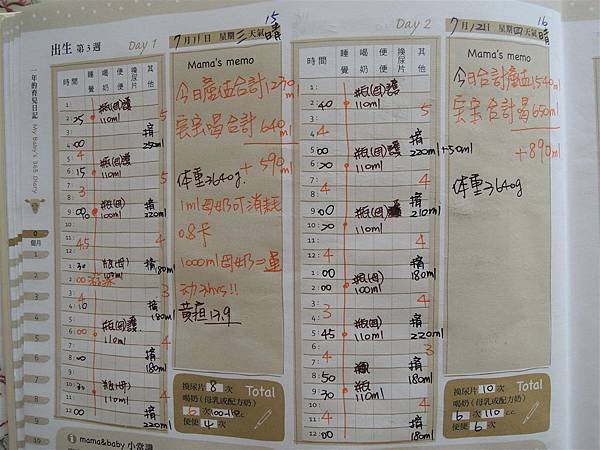 出生 第3週 Day 1
7月11日 星期三天氣晴
15
時間 睡覺 喝奶 便便 換尿片 其他
一年的育兒日記 My Baby's 365 Diary
0
個月
1
2
3
4
5
6
7
8
9
10
1:
2: 25 瓶(母)護 110ml 5
3:
4: 00 擠 250ml
5: 4
6: 15 瓶(母)護 110ml 5
7: 3
8:
9: 00 瓶(母) 100ml 擠 220ml
10:
11:
12: 45 4
1: 30 瓶(母) 擠 180ml
2: 00 游泳
3: 4
4: 10 擠 180ml
5:
6: 00 瓶(母)護 110ml
7:
8: 00 擠 180ml
9:
10: 30 瓶(母) 110ml
11: 4
12: 00 擠 220ml
Mama's memo
今日產值合計1230ml
寶寶喝合計 640ml
+ 590ml
體重3640g.
1ml母奶可消耗
0.8卡
1000ml母奶=運
動3hrs!!
黃疸 13.9
換尿片 8 次
Total
喝奶(母乳或配方奶)
6 次 100~110 c.c.
便便 4 次
i mama&baby 小常識
Day 2
7月12日 星期四天氣晴
16
時間 睡覺 喝奶 便便 換尿片 其他
1:
2: 40 瓶(母)護 110ml 5
3:
4:
5: 00 擠 220ml+50ml
6: 30 瓶(母)護 110ml
7: 4 4
8:
9: 00 瓶(母) 擠 210ml
10: 30 110ml
11: 4
12:
1: 00 擠 180ml
2: 00 瓶(母) 100ml
3: 4
4:
5: 00 瓶(母)護
5: 45 110ml 擠 220ml
6:
7: 4 3
8: 50 擠 180ml
9: 30 瓶 110ml
10:
11: 4
12: 00 擠 180ml
Mama's memo
今日合計產值1540ml
寶寶合計喝 650ml
+890ml
體重3640g
換尿片 10 次
Total
喝奶(母乳或配方奶)
6 次 110 c.c.
便便 6 次